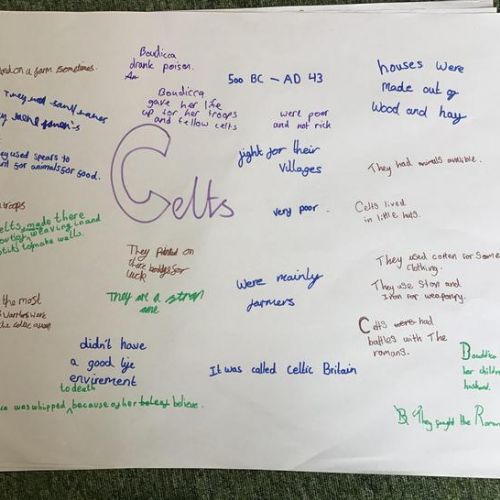 Boudicca
drank poison.
An
Boudicca
gave her life
up for her troops
and fellow celts
500 BC – AD 43
houses were
made out of
wood and hay
on a farm sometimes.
They
used spears to
for animals for food.
were poor
and not rich
fight for their
villages
very poor.
They had animals
Celts lived
in little huts.
Celts
troops
elts made there
weaving in and
to make walls.
They Painted on
there bodies for
luck
They are a strong
one
were mainly
farmers
They used cotten for some
clothing.
They use Ston and
Iron for weaponry.
Celts were had
battles with The
romans.
the most
warriors were
the celtic
didn't have
a good life
envirement
It was called Celtic Britain
to death
was whipped because of her believe.
Boudic
her childre
husband.
They fought the Roman